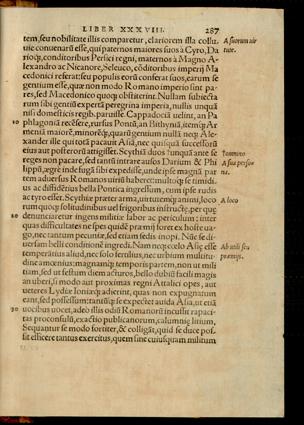 LIBER XXXVIII. 287
tem, seu nobilitate illis comparetur, clariorem illa collu-
uie conuenarū esse, qui paternos maiores suos à Cyro, Da
rioq́;, conditoribus Persici regni, maternos à Magno A-
lexandro ac Nicanore, Seleuco, conditoribus imperij Ma
cedonici referat: seu populis eorū conferat suos, earum se
gentium esse, quæ non modo Romano imperio sint pa-
res, sed Macedonico quoq́; obstiterint. Nullam subiecta
rum sibi gentiū expertā peregrina imperia, nullis unquā
nisi domesticis regib. paruisse. Cappadociā uelint, an Pa
phlagoniā recēsere, rursus Pontū, an Bithyniā, itemq́; Ar
meniā maiorē, minorēq́;, quarū gentium nullā neq́; Alex-
ander ille qui totā pacauit Asiā, nec quisquā successorū
eius aut posterorū attigisset. Scythiæ duos unquā ante se
reges non pacare, sed tantū intrare ausos Darium & Phi
lippū, ægre inde fugā sibi expedisse, unde ipse magnā par
tem aduersus Romanos uiriū haberet: multoq́; se timidi-
us ac diffidentius bella Pontica ingressum, cum ipse rudis
ac tyro esset. Scythiæ præter arma, uirtutemq́; animi, loco
rum quoq́; solitudinibus uel frigoribus instructæ, per quæ
denunciaretur ingens militiæ labor ac periculum: inter
quas difficultates ne spes quidē præmij foret ex hoste ua-
go, nec tantum pecunia, sed etiam sedis inopi. Nūc se di-
uersam belli conditionē ingredi. Nam neq́; cœlo Asiæ esse
temperātius aliud, nec solo fertilius, nec urbium multitu-
dine amœnius: magnamq́; temporis partem, non ut mili
tiam, sed ut festum diem acturos, bello dubiū facili magis
an uberi, si modo aut proximas regni Attalici opes, aut
ueteres Lydiæ Ioniæq́; audierint, quas non expugnatum
eant, sed possessum: tantūq́; se expectet auida Asia, ut etiā
uocibus uocet, adeo illis odiū Romanorū incussit rapaci-
tas proconsulū, exactio publicanorum, calumniæ litium.
Sequantur se modo fortiter, & colligāt, quid se duce pos-
sit efficere tantus exercitus, quem sine cuiusquam militum
A suorum uir
tute.
A sua perso-
na.
A loco
Ab utili seu
præmijs.